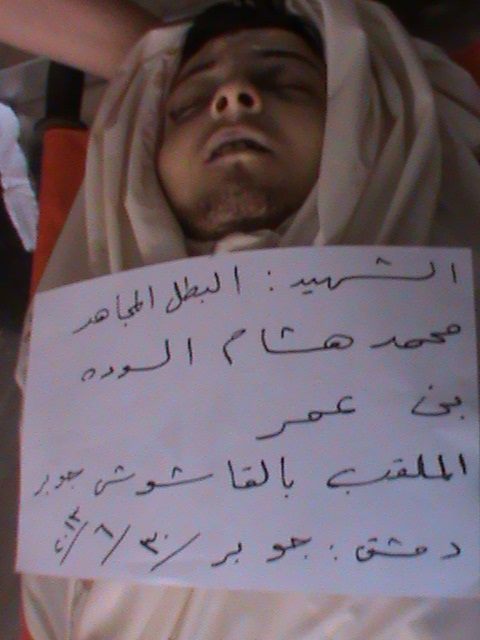 الشهيد : البطل المجاهد
محمد هشام السوده
بن عمر
الملقب بالقاشوش جوبر
دمشق : جوبر ٣٠/٦/٢٠١٣